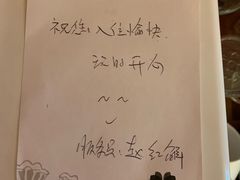 祝您：入住愉快.
玩的开心
~ ~
服务员：赵红